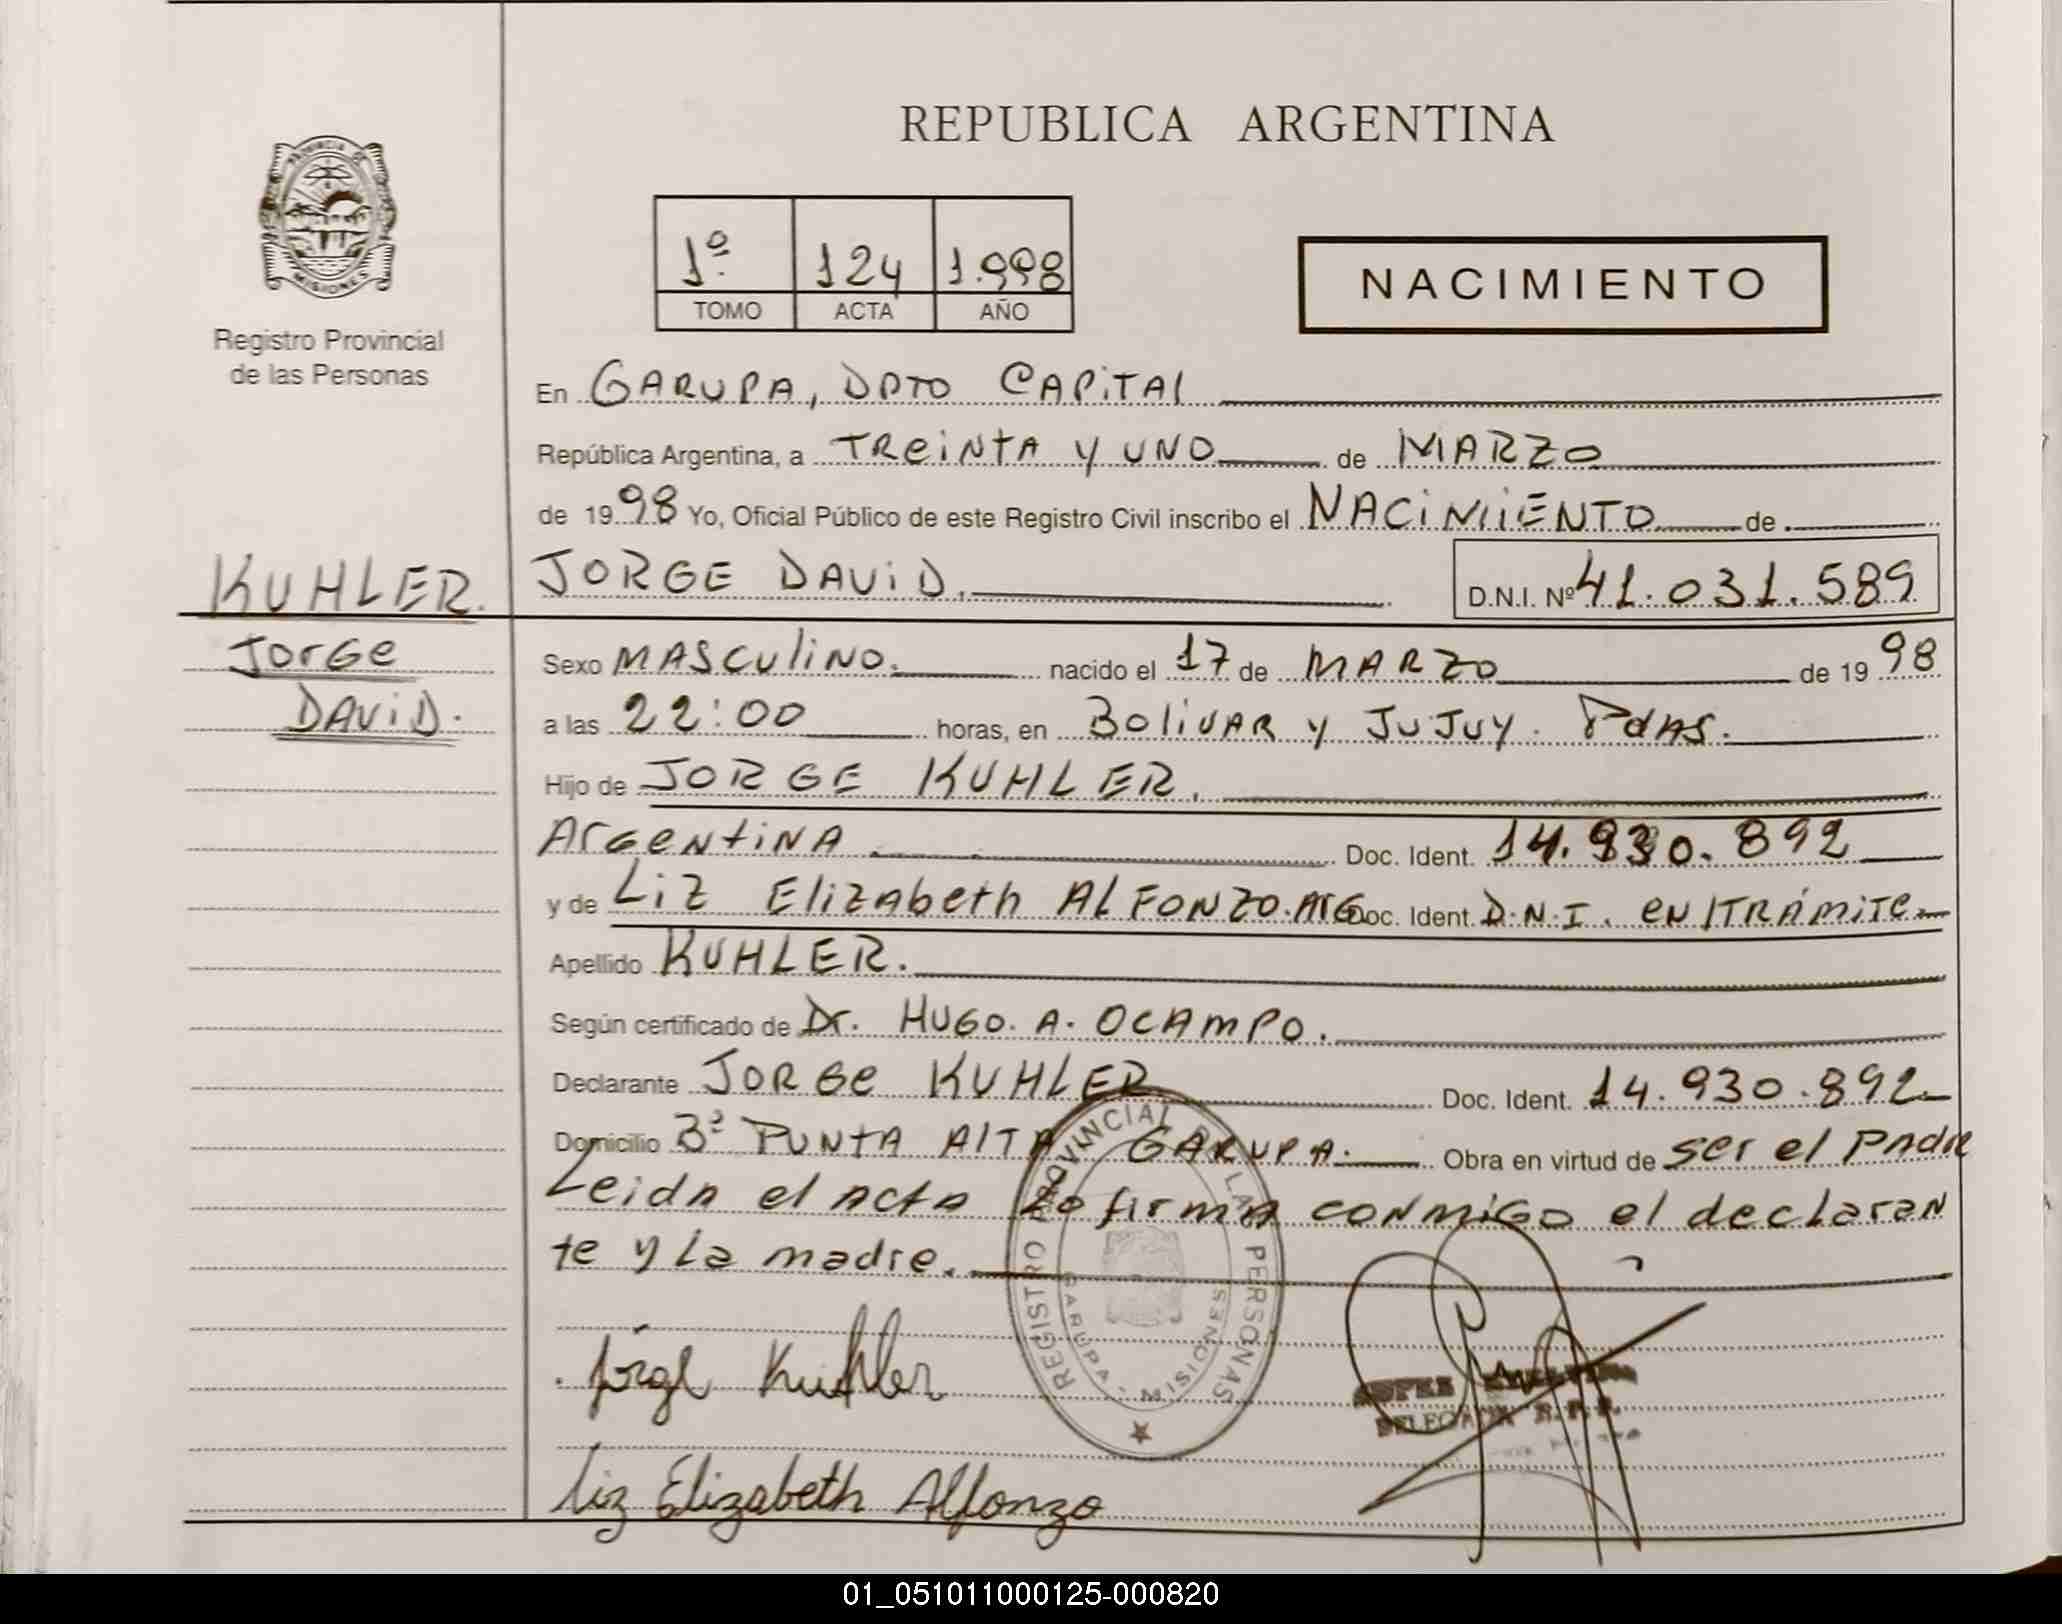 REPUBLICA ARGENTINA
PROVINCIA DE
MISIONES
Registro Provincial
de las Personas
1º 124 1.998
TOMO ACTA AÑO
NACIMIENTO
En GARUPA, DPTO CAPITAL
República Argentina, a TREINTA Y UNO de MARZO
de 19 98 Yo, Oficial Público de este Registro Civil inscribo el NACIMIENTO de
KUHLER. JORGE DAVID. D.N.I. Nº 41.031.589
JorGe
DAViD.
Sexo MASCULINO. nacido el 17 de MARZO de 19 98
a las 22:00 horas, en BoliVAR y JUJUY. PdAS.
Hijo de JORGE KUHLER.
ArGentiNA. Doc. Ident. 14.930.892
y de Liz Elizabeth ALFONZO. ArG Doc. Ident. D.N.I. EN TRÁMITE
Apellido KUHLER.
Según certificado de Dr. HUGO. A. OCAMPO.
Declarante JORGe KUHLER Doc. Ident. 14.930.892
Domicilio Bº PUNTA AlTA GARUPA. Obra en virtud de ser el PAdre
Leida el acta La firma conmigo el declaran
te y La madre.
REGISTRO PROVINCIAL DE LAS PERSONAS
GARUPA - MISIONES
Jorge Kuhler
DELEGADA R.P.P.
Liz Elizabeth Alfonzo
01_051011000125-000820